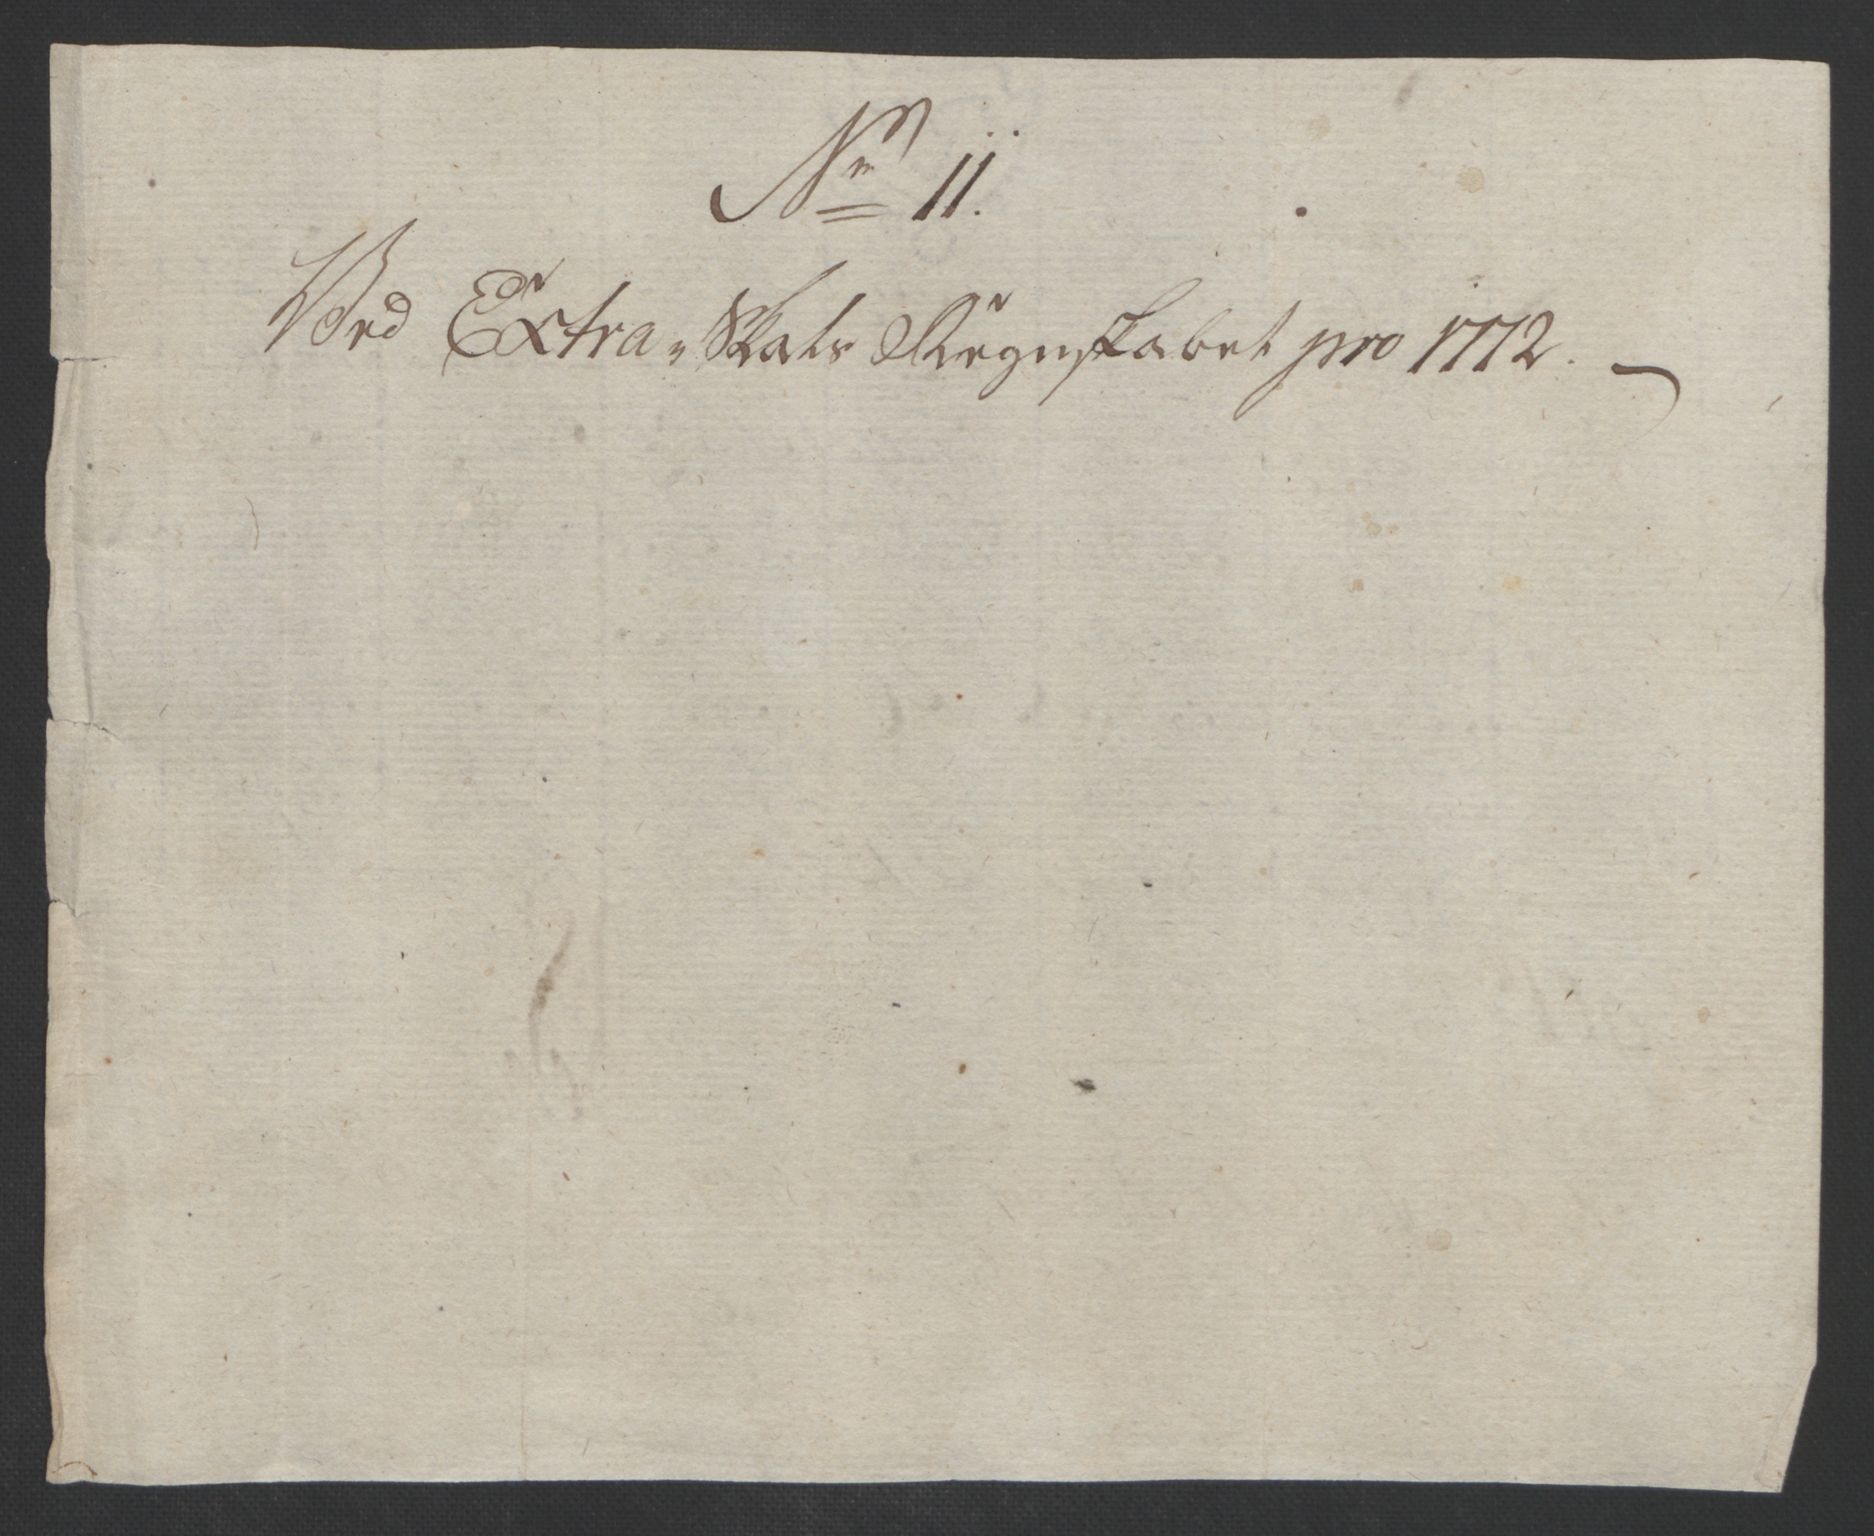 Nr 11.
Ved Extra-Skats Regnskabet pro 1772.